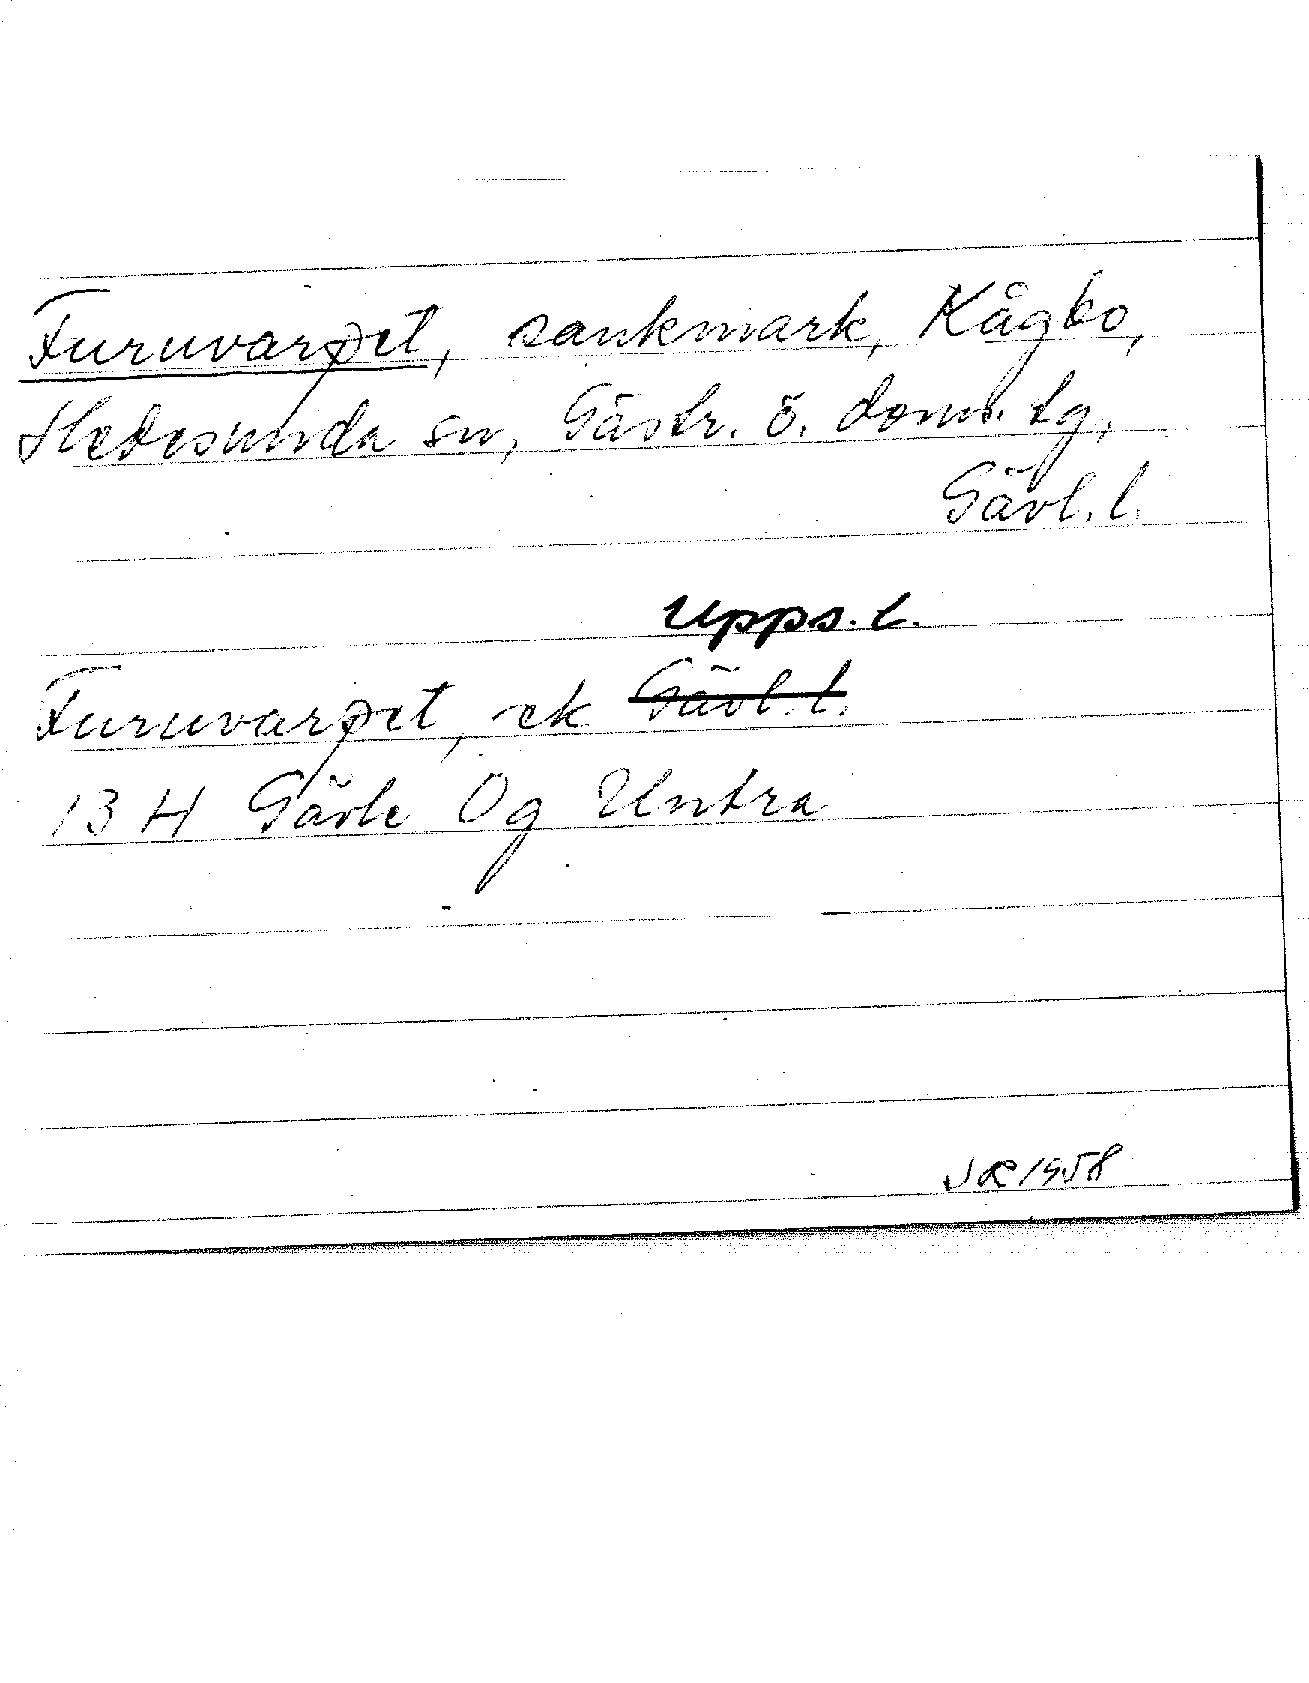 Furuvarpet, sankmark, Kågbo,
Hedesunda sn, Gästr. ö. doms. tg,
Gävl. l.
Upps. l.
Furuvarpet, ek Gävl. l.
13 H Gävle Og Untra
JR 1958